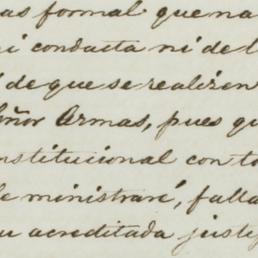 as formal que na
i conducta ni de l
de que se realizen
eñor Armas, pues qu
nstitucional con to
le ministraré, falla
u acreditada justif